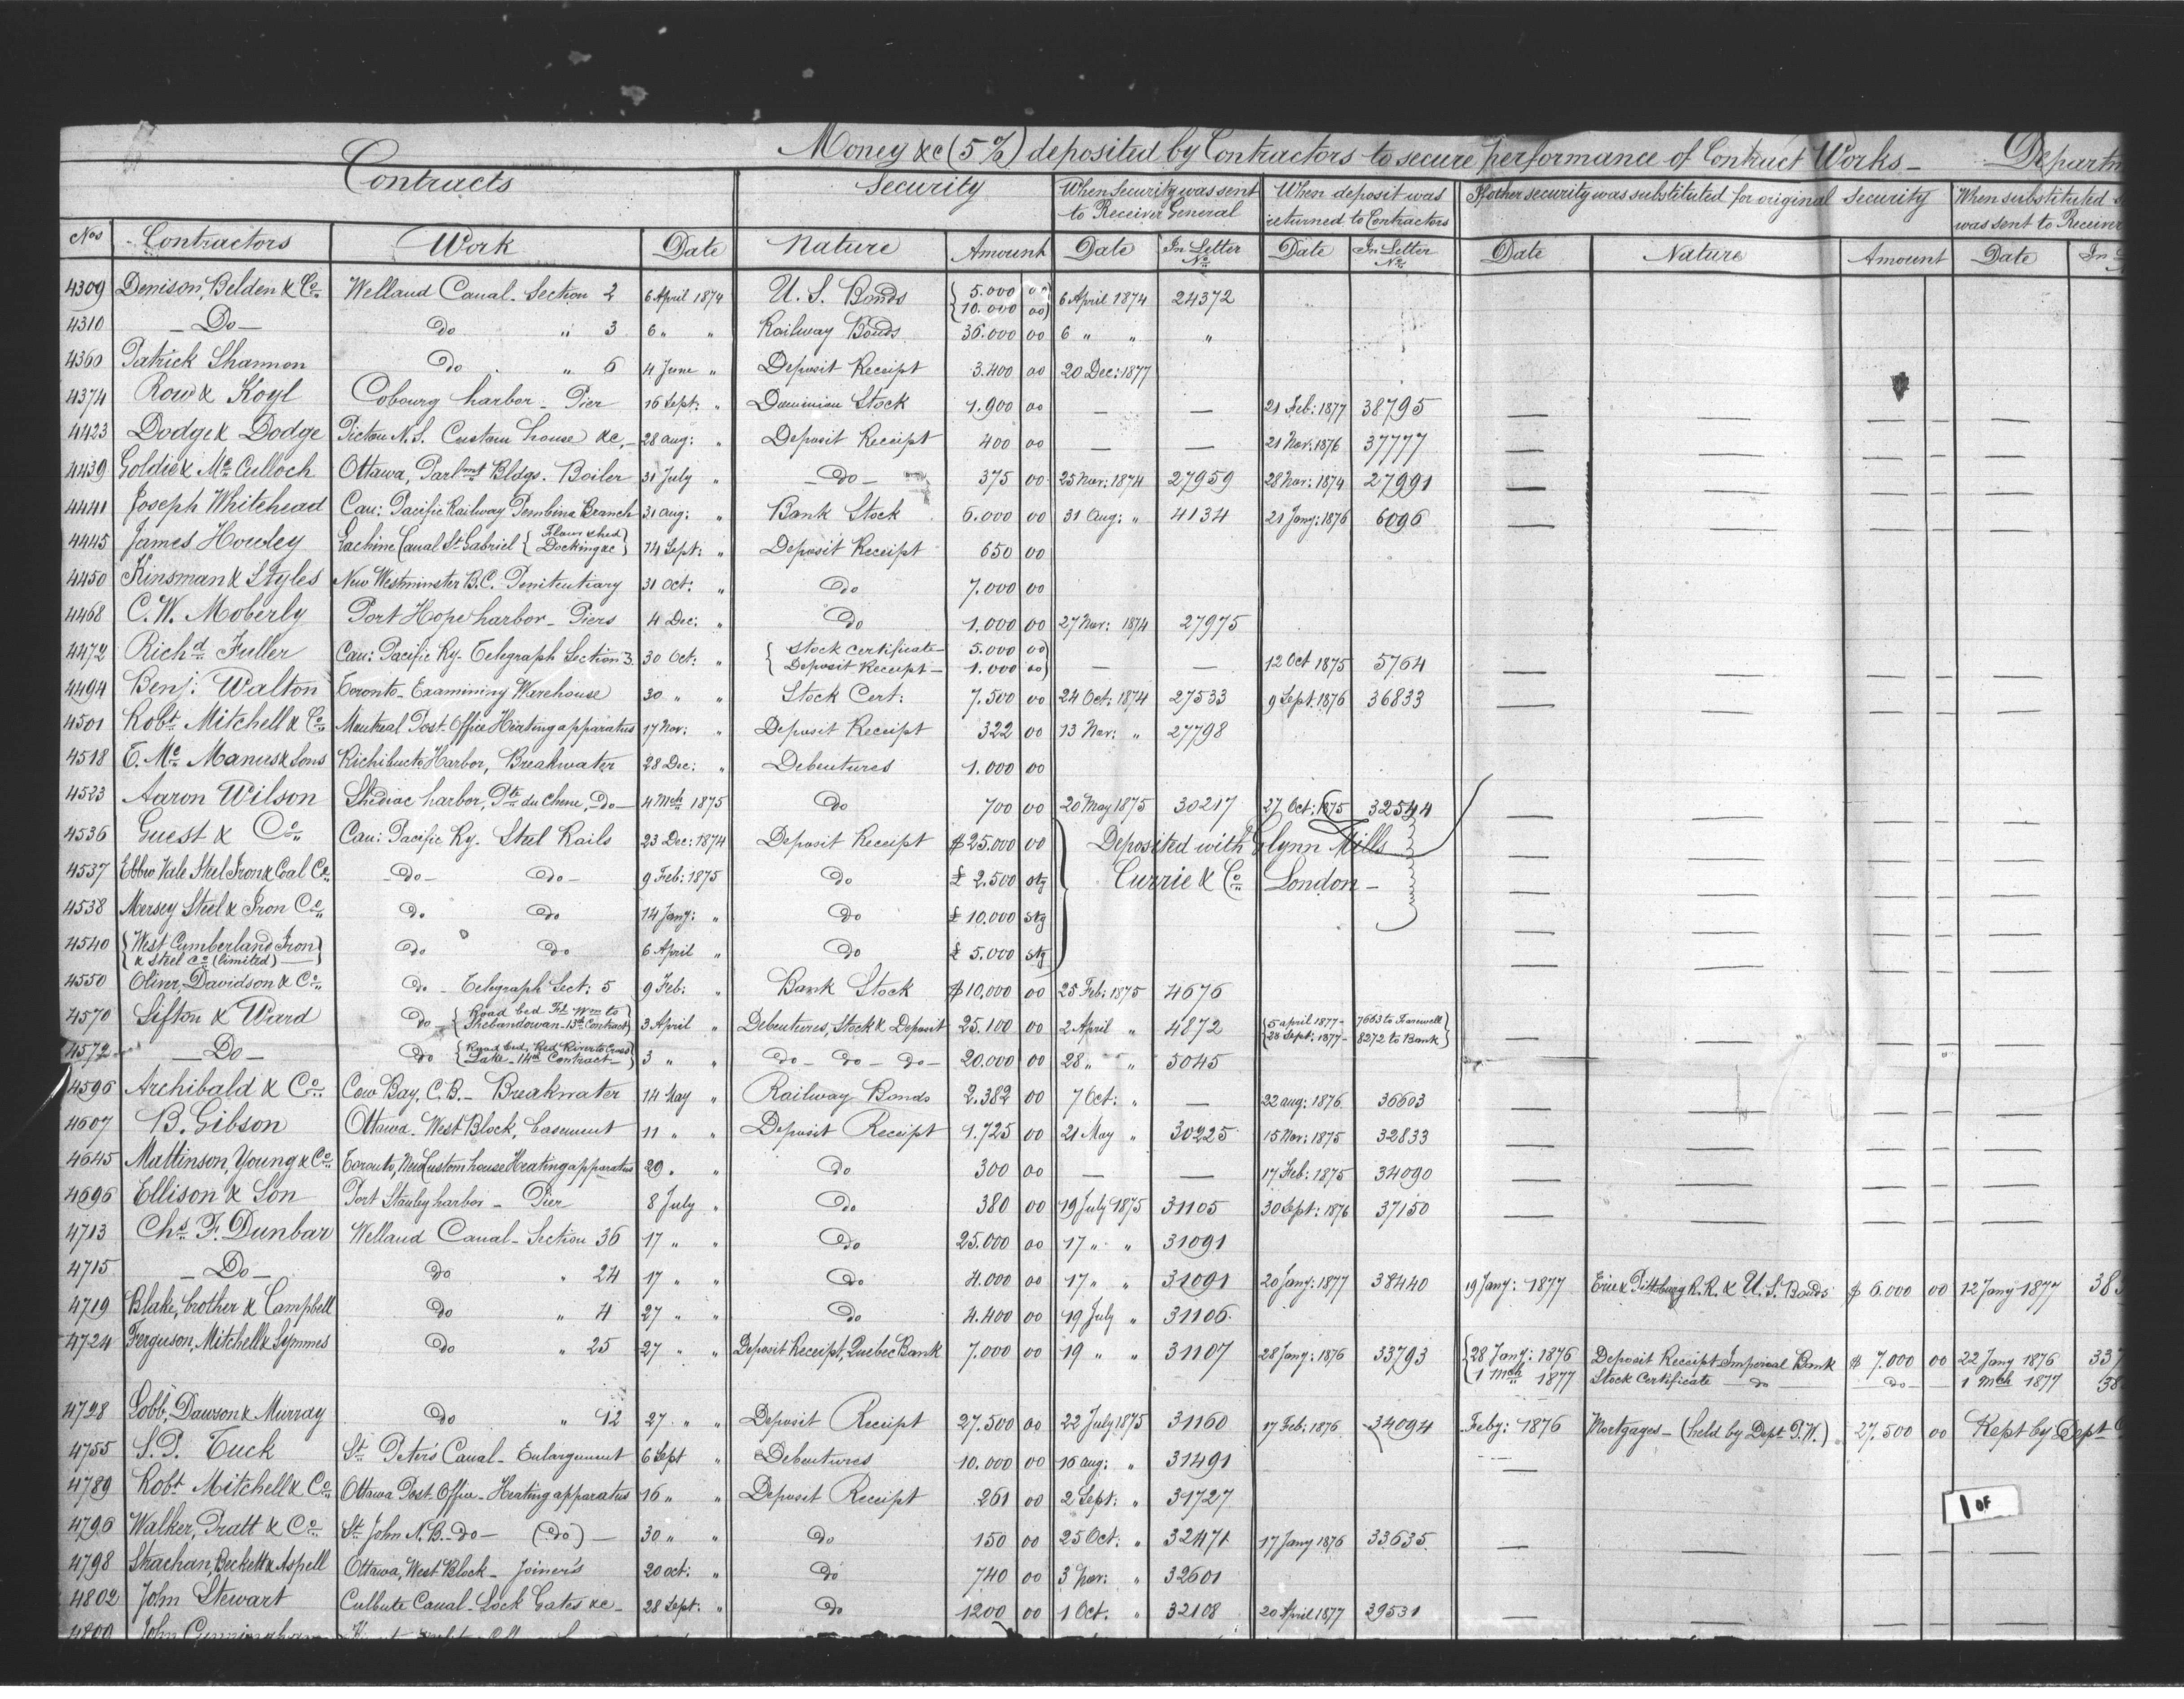 Money &c (5%) deposited by Contractors to secure performance of Contract Works — Departm
Contracts | Security | When Security was sent to Receiver General | When deposit was returned to Contractors | If other security was substituted for original Security | When substituted was sent to Receiver
Nos | Contractors | Work | Date | Nature | Amount | Date | In Letter No. | Date | In Letter No. | Date | Nature | Amount | Date | In
4309 Denison, Belden & Co. Welland Canal - Section 2 6 April 1874 U. S. Bonds { 5.000 00 10.000 00 } 6 April 1874 24372
4310 — Do — do " 3 6 " " Railway Bonds 36.000 00 6 " " "
4360 Patrick Shannon do " 6 4 June " Deposit Receipt 3.400 00 20 Dec: 1877
4374 Row & Koyl Cobourg harbor - Pier 16 Sept: " Dominion Stock 1.900 00 — — 21 Feb: 1877 38795 — — — — — —
4423 Dodge & Dodge Pictou N.S. Custom house &c, — 28 Aug: " Deposit Receipt 400 00 — — 21 Nov: 1876 37777 — — — — — —
4439 Goldie & McCulloch Ottawa, Parlmt Bldgs. Boiler 31 July " — do — 375 00 25 Nov: 1874 27959 28 Nov: 1874 27991 — — — — — —
4441 Joseph Whitehead Can: Pacific Railway Pembina Branch 31 Aug: " Bank Stock 6.000 00 31 Aug: " 4134 21 Jany: 1876 6096 — — — — — —
4445 James Howley Lachine Canal St Gabriel { Flour shed Docking &c } 14 Sept: " Deposit Receipt 650 00
4450 Kinsman & Styles New Westminster B.C. Penitentiary 31 Oct: " do 7.000 00
4468 C. W. Moberly Port Hope harbor - Piers 4 Dec: " do 1.000 00 27 Nov: 1874 27975
4472 Richd Fuller Can: Pacific Ry. Telegraph Section 3. 30 Oct: " { Stock certificate — 5.000 00 Deposit Receipt — 1.000 00 } — — 12 Oct 1875 5764 — — — — — —
4494 Benj: Walton Toronto - Examining Warehouse 30 " " Stock Cert: 7.500 00 24 Oct: 1874 27533 9 Sept. 1876 36833 — — — — — —
4501 Robt Mitchell & Co. Montreal Post Office Heating apparatus 17 Nov: " Deposit Receipt 322 00 13 Nov: " 27798
4518 E. McManus & Sons Richibucto Harbor, Breakwater 28 Dec: " Debentures 1.000 00
4523 Aaron Wilson Shediac harbor, Pte du Chene, — do — 4 Mch 1875 do 700 00 20 May 1875 30217 27 Oct: 1875 32544 — — — — — —
4536 Guest & Co. Can: Pacific Ry. Steel Rails 23 Dec: 1874 Deposit Receipt $25.000 00 } Deposited with Glynn Mills — — — — —
4537 Ebbw Vale Steel Iron & Coal Co. — do — — do — 9 Feb: 1875 do £ 2.500 stg Currie & Co. London — — — — — —
4538 Mersey Steel & Iron Co. do do 14 Jany: " do £ 10.000 stg — — — — —
4540 { West Cumberland Iron & Steel Co. (limited) — } do do 6 April " do £ 5.000 stg — — — — —
4550 Oliver, Davidson & Co. do - Telegraph Sect: 5 9 Feb: " Bank Stock $10.000 00 25 Feb: 1875 4676
4570 Sifton & Ward do - { Road bed Ft Wm to Shebandowan - 13th Contract } 3 April " Debentures, Stock & Deposit 25.100 00 2 April " 4872 { 5 April 1877 - 7663 to Farewell 28 Sept: 1877 - 8272 to Bank } — — — — —
4572 — Do — do { Road bed, Red River to Cross Lake - 14th Contract — } 3 " " do — do — do — 20.000 00 28 " " 5045
4596 Archibald & Co. Cow Bay, C.B. — Breakwater 14 May " Railway Bonds 2.382 00 7 Oct: " — 22 Aug: 1876 36603 — — — — —
4607 B. Gibson Ottawa. West Block, basement 11 " " Deposit Receipt 1.725 00 21 May " 30225 15 Nov: 1875 32833 — — — — —
4645 Mattinson, Young & Co. Toronto, New Custom house Heating apparatus 29 " " do 300 00 — — 17 Feb: 1875 34090 — — — — —
4696 Ellison & Son Port Stanley harbor - Pier 8 July " do 380 00 19 July 1875 31105 30 Sept: 1876 37150 — — — — —
4713 Chs. F. Dunbar Welland Canal - Section 36 17 " " do 25.000 00 17 " " 31091
4715 — Do — do " 24 17 " " do 4.000 00 17 " " 31091 20 Jany: 1877 38440 19 Jany: 1877 Erie & Pittsburg R.R. & U.S. Bonds $ 6.000 00 12 Jany 1877 38
4719 Blake, brother & Campbell do " 4 27 " " do 4.400 00 19 July " 31106
4724 Ferguson, Mitchell & Symmes do " 25 27 " " Deposit Receipt, Quebec Bank 7.000 00 19 " " 31107 28 Jany: 1876 33793 { 28 Jany: 1876 Deposit Receipt Imperial Bank $ 7.000 00 22 Jany 1876 337
1 Mch 1877 Stock Certificate — do — — do — 1 Mch 1877 38
4728 Gobb, Dawson & Murray do " 12 27 " " Deposit Receipt 27.500 00 22 July 1875 31160 17 Feb: 1876 34094 Feby: 1876 Mortgages — (held by Dept P.W.) 27.500 00 Kept by Dept
4755 S. P. Tuck St Peter's Canal - Enlargement 6 Sept " Debentures 10.000 00 16 Aug: " 31491 —
4789 Robt Mitchell & Co. Ottawa Post Office - Heating apparatus 16 " " Deposit Receipt 261 00 2 Sept: " 31727
1 OF
4796 Walker, Pratt & Co. St John N.B. - do — (do) — 30 " " do 150 00 25 Oct: " 32471 17 Jany 1876 33635 — — — — —
4798 Strachan, Beckett & Aspell Ottawa, West Block - Joiner's 20 Oct: " do 740 00 3 Nov: " 32601
4802 John Stewart Culbute Canal - Lock Gates &c — 28 Sept: " do 1200 00 1 Oct. " 32108 20 April 1877 39531 — — — — —
John Cunningham